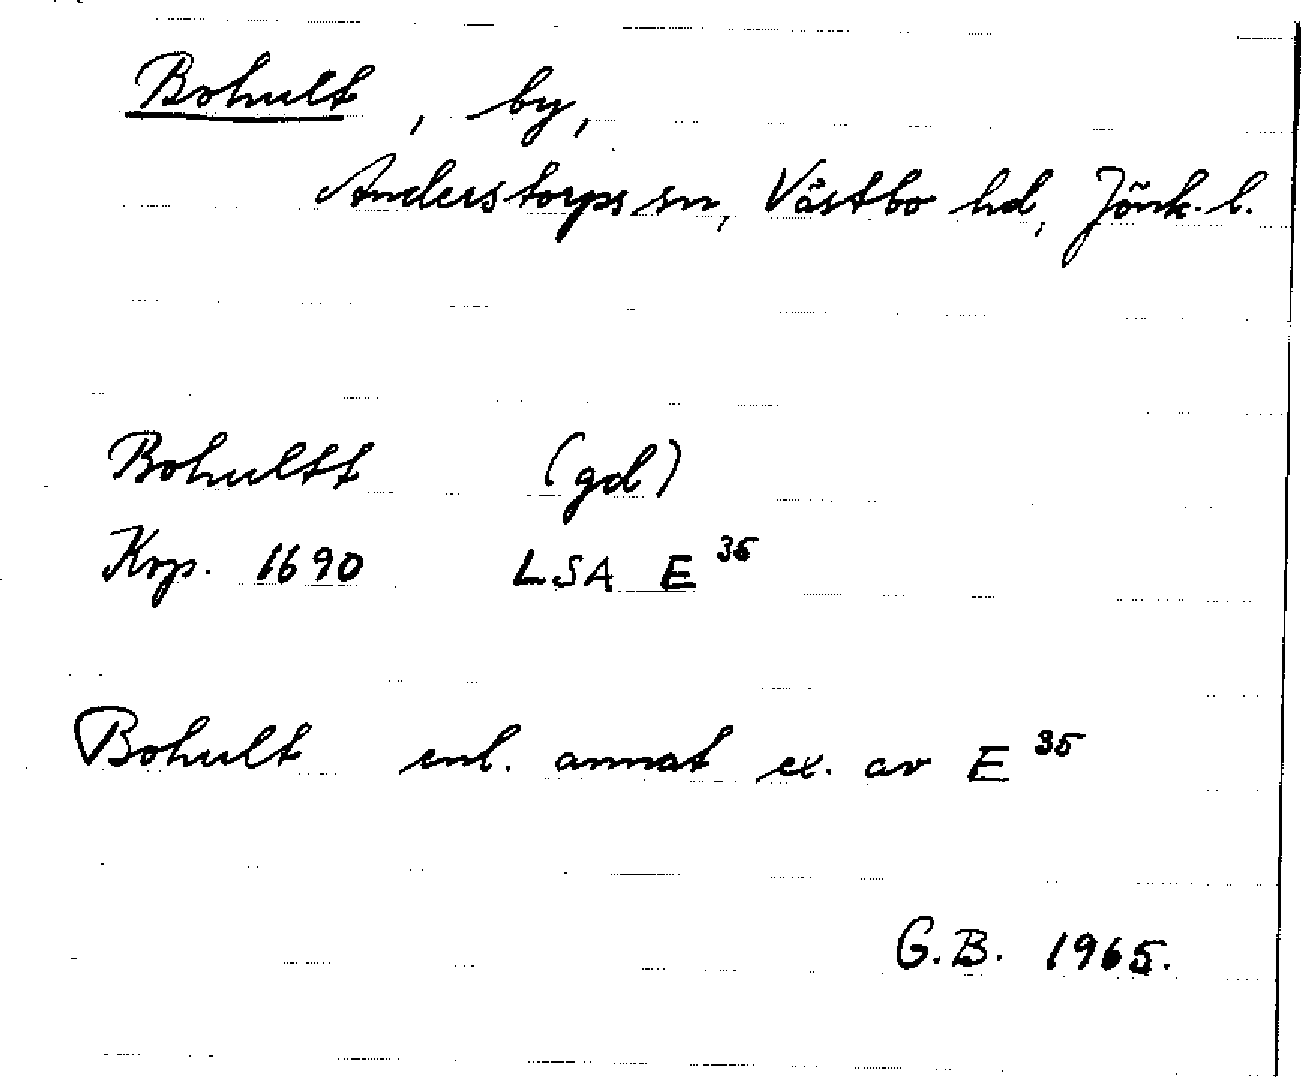 Bohult, by,
Anderstorps sn, Västbo hd, Jönk. l.
Bohultt (gd)
Kop. 1690 LSA E 35
Bohult enl. annat ex. av E 35
G.B. 1965.